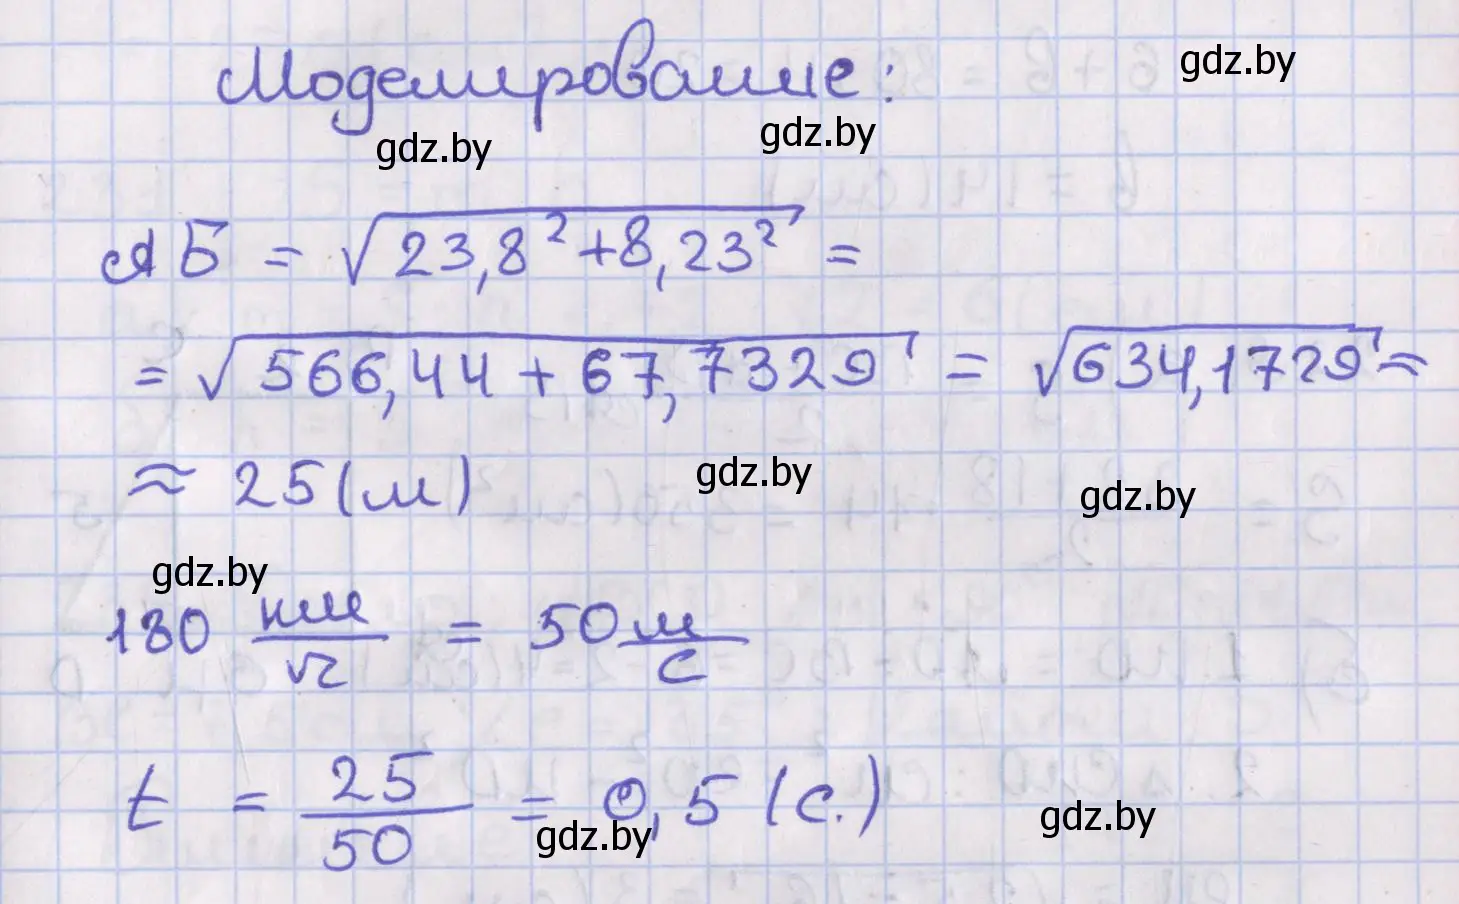 Моделирование:
gdz.by
gdz.by
gdz.by
АБ = √23,8² + 8,23² =
= √566,44 + 67,7329 = √634,1729 =
≈ 25 (м)
gdz.by
gdz.by
gdz.by
180 км/ч = 50 м/с
t = 25/50 = 0,5 (с.)
gdz.by
gdz.by